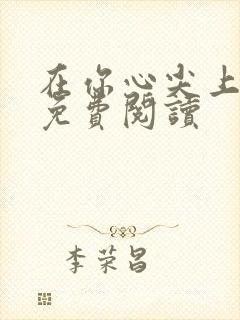 在你心尖上
免費閱讀
李荣昌